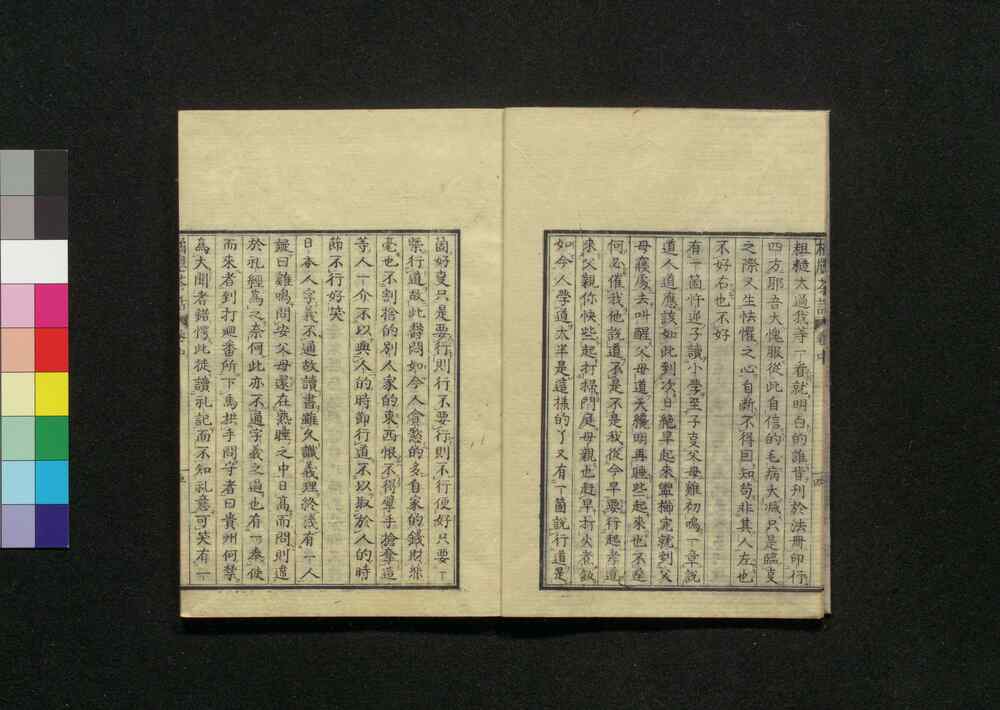 粗糙太過我等一看就明白的誰肯刋於法冊印行
四方耶吾大愧服從此自信的毛病大减只是臨㕝
之際又生怯懼之心自斷不得囙知苟非其人左也
不好右也不好
有一箇忤逆子讀小學至子㕝父母雞初鳴一章說
道人道應該如此到次日絕早起來盥櫛完就到父
母寢處去叫醒父母道天纔明再睡些起來也不
何必催我他說道不是不是我從今早要行起孝道
來父親你快些起打掃門庭母親也趕早打火煮飯
如今人學道太半是這樣的了又有一箇說行道是
箇好㕝只是要行則行不要行則不行便好只要一
行道故此鬱悶如今人貪慾的多自家的錢財
毫也不割捨的别人家的東西恨不得舉手搶奪這
等人一介不以與人的時節行道不以取於人的時
節不行好笑
日本人字義不通故讀書雖久識義理終淺有一人
疑曰雞鳴問安父母還在熟睡之中日高而問則違
於礼經爲之奈何此亦不通字義之過也有一奉使
而來者到打興番所下馬拱手問守者曰貴州何禁
爲大聞者錯愕此徒讀礼記而不知礼意可笑有一